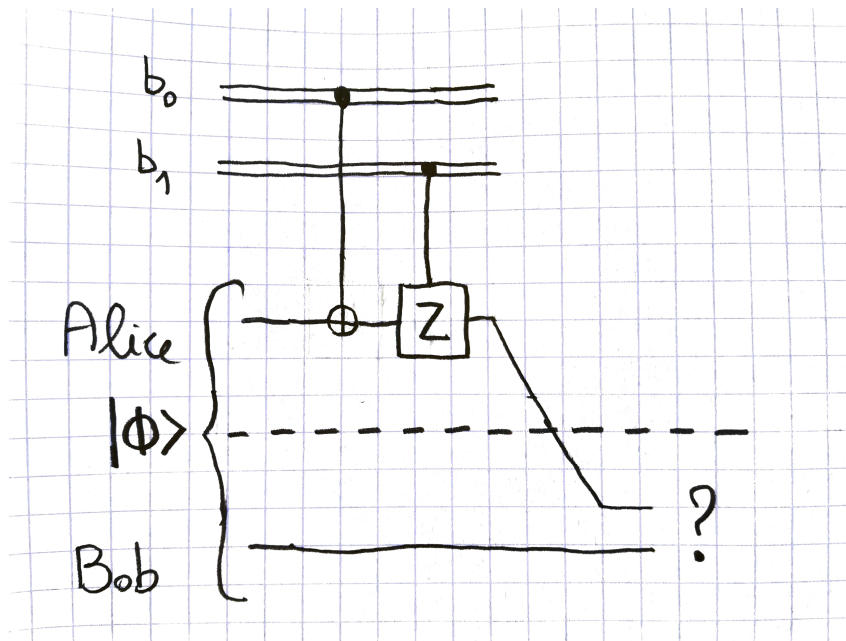 b₀
b₁
Alice
Z
|Φ>
?
Bob